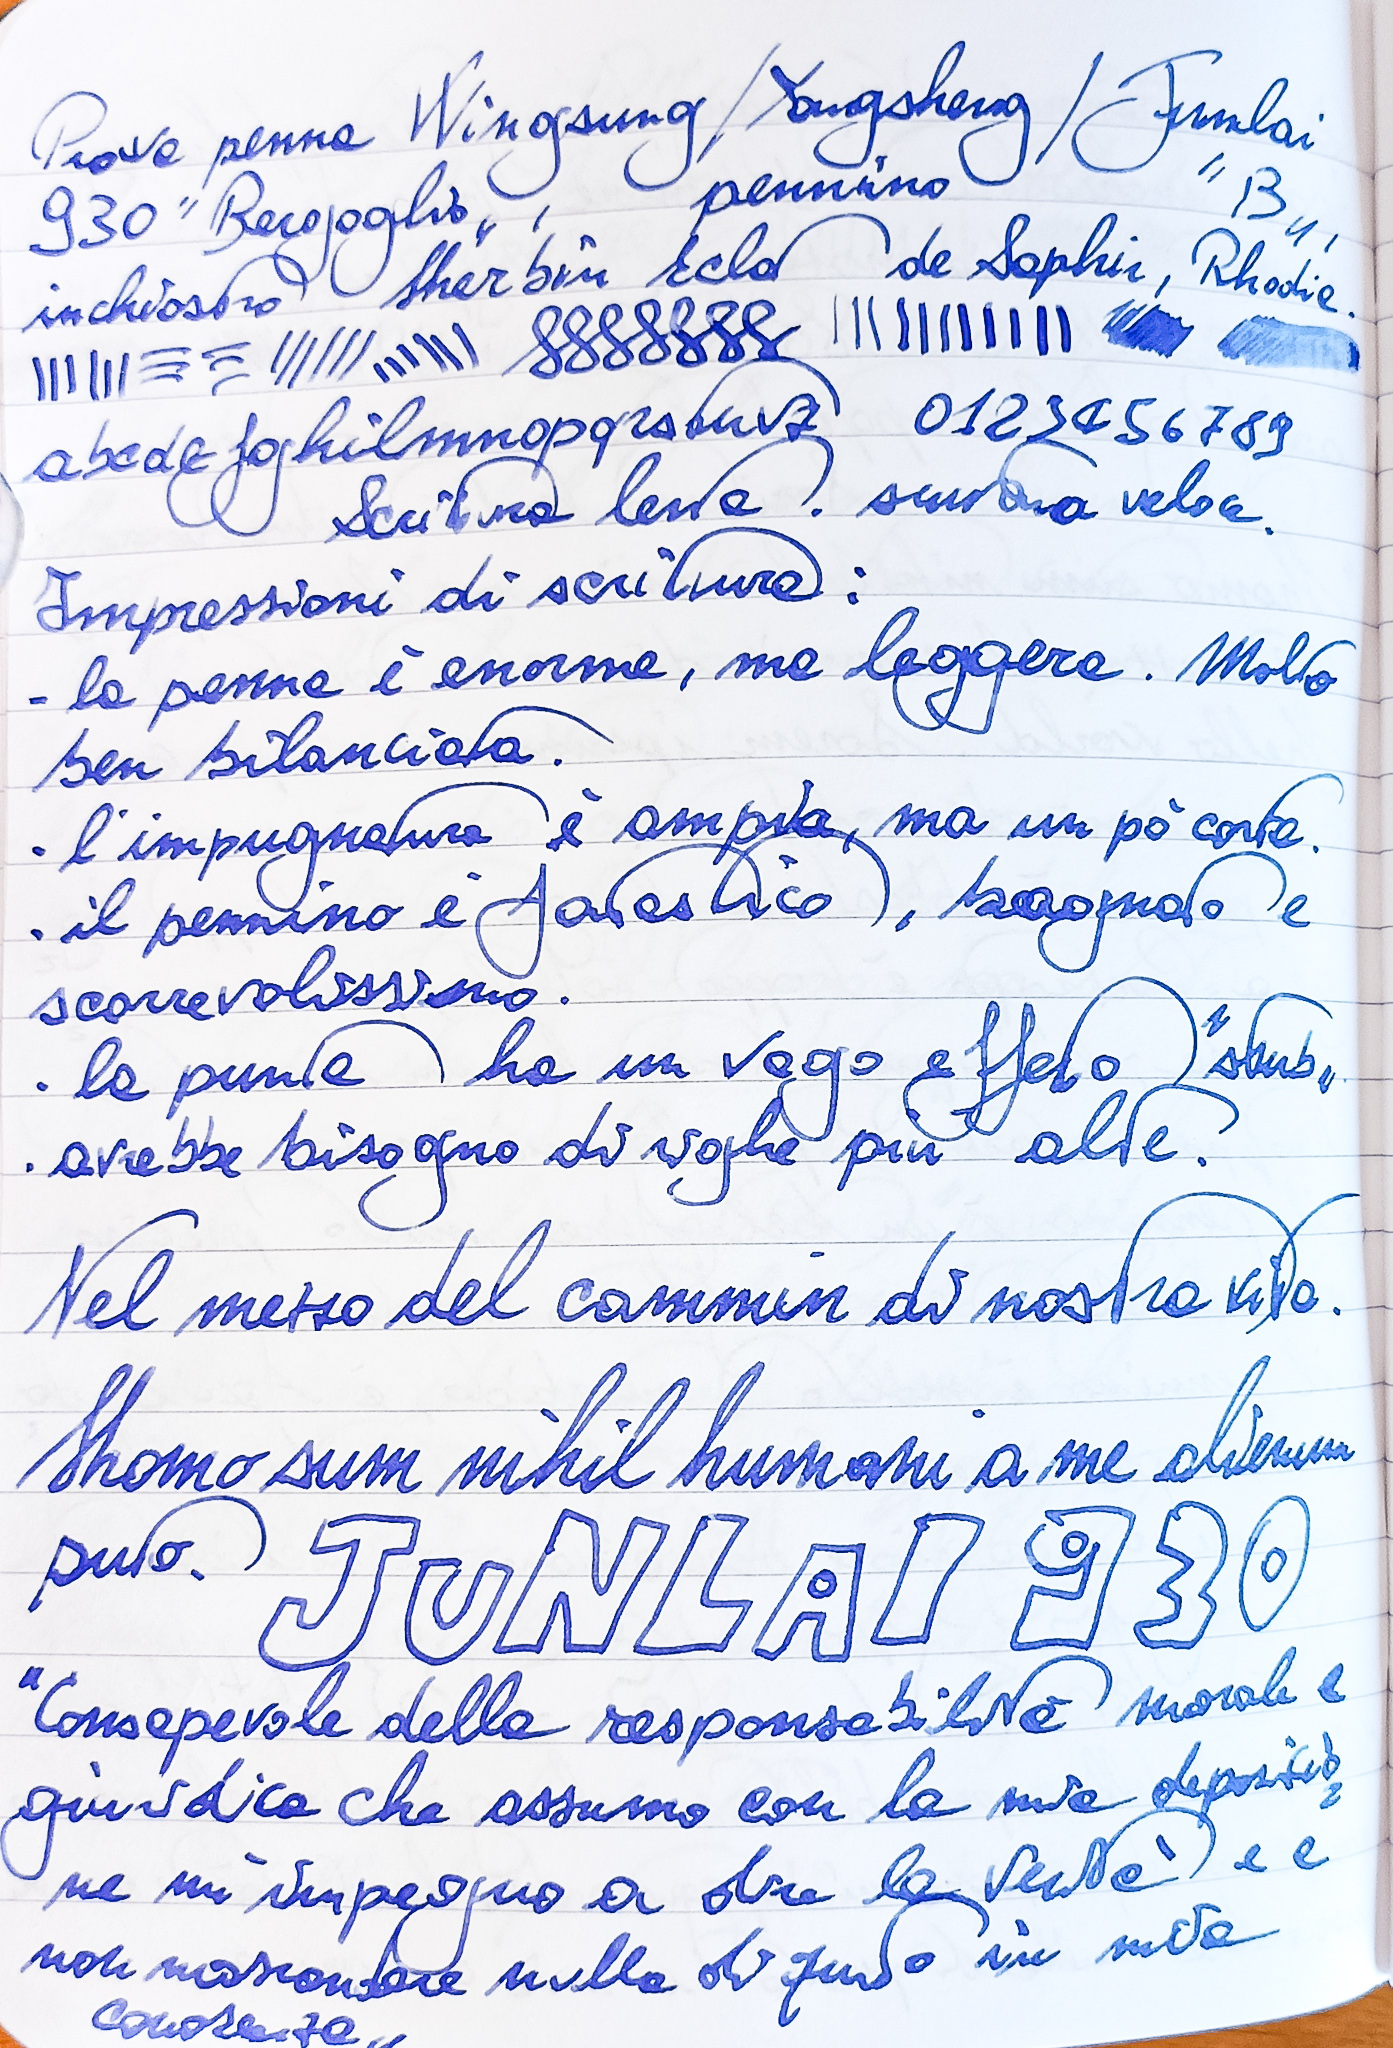 Prova penna Wingsung / Yongsheng / Junlai
930 "Bergoglio", pennino "B",
inchiostro Herbin Eclat de Saphir, Rhodia.
abcdefghilmnopqrstuvz 0123456789
Scrittura lenta. scrittura veloce.
Impressioni di scrittura:
- la penna è enorme, ma leggera. Molto
ben bilanciata.
. l'impugnatura è ampia, ma un pò corta.
. il pennino è fantastico, bagnato e
scorrevolissimo.
. la punta ha un vago effetto "stub".
. avrebbe bisogno di righe più alte.
Nel mezzo del cammin di nostra vita.
Homo sum nihil humani a me alienum
puto. JUNLAI 930
"Consapevole della responsabilità morale e
giuridica che assumo con la mia deposizio=
ne mi impegno a dire la verità e a
non nascondere nulla di quanto in mia
conoscenza"